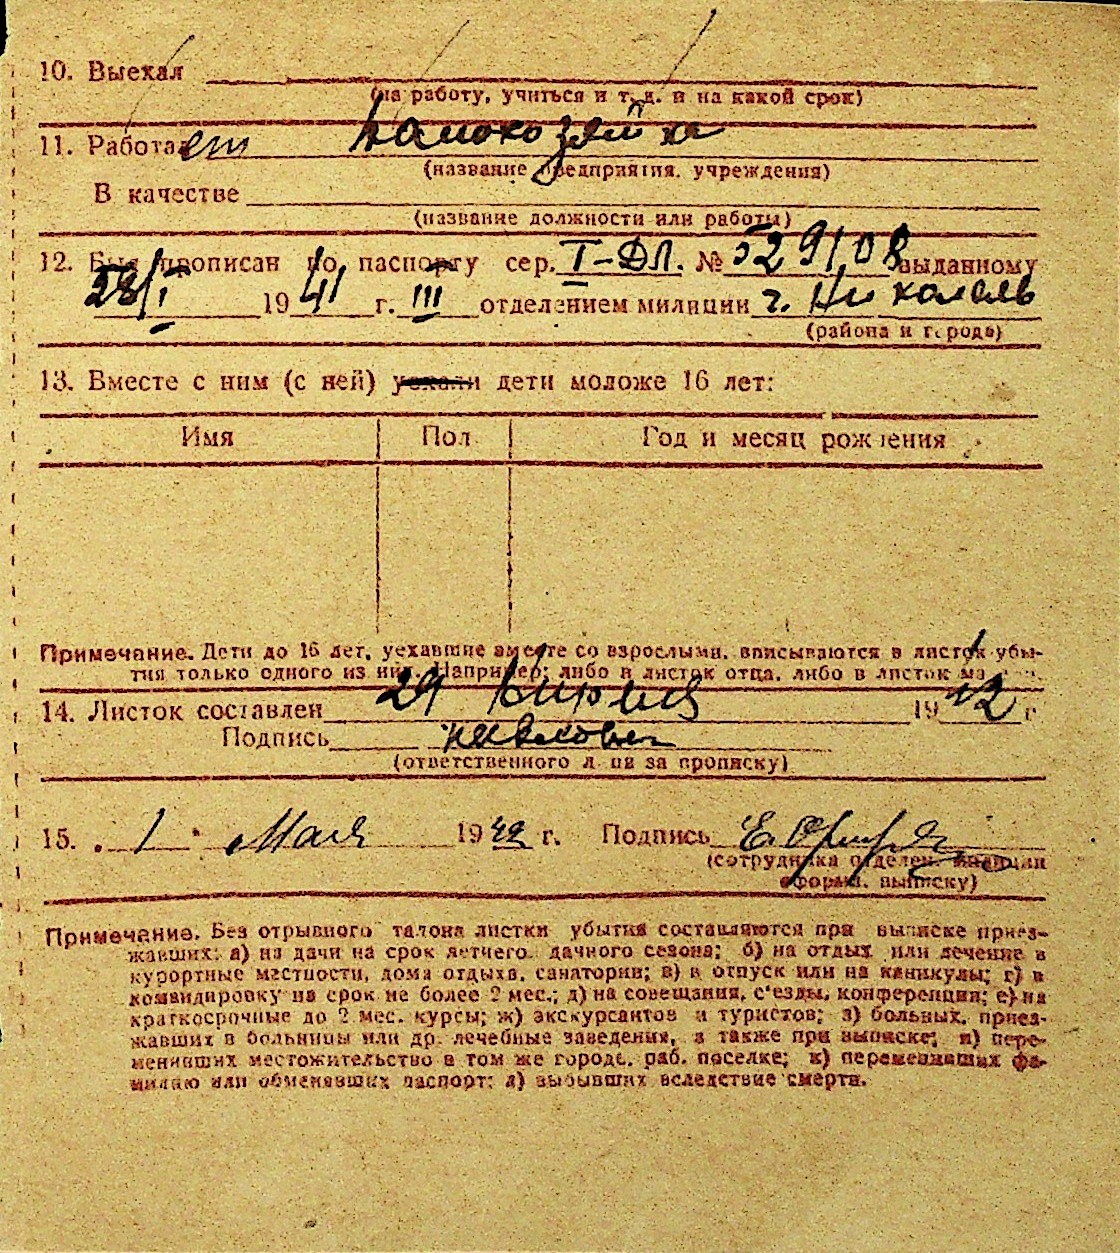 10. Выехал
(на работу, учиться и т. д. и на какой срок)
11. Работает Домохозяйка
(название предприятия, учреждения)
В качестве
(название должности или работы)
12. Был прописан по паспорту сер. I-ДЛ. № 529108 выданному
28/I 1941 г. III отделением милиции г.
(района и города)
13. Вместе с ним (с ней) уехали дети моложе 16 лет:
Имя Пол Год и месяц рождения
Примечание. Дети до 16 лет, уехавшие вместе со взрослыми, вписываются в листок убы-
тия только одного из них. Например: либо в листок отца, либо в листок
14. Листок составлен 29 Апреля 1942 г
Подпись
(ответственного лица за прописку)
15. „ 1 " Мая 1942 г. Подпись
(сотрудника отделен. милиции
оформ. выписку)
Примечание. Без отрывного талона листки убытия составляются при выписке приез-
жавших: а) на дачи на срок летнего дачного сезона; б) на отдых или лечение в
курортные местности, дома отдыха, санатории; в) в отпуск или на каникулы; г) в
командировку на срок не более 2 мес.; д) на совещания, с'езды, конференции; е) на
краткосрочные до 2 мес. курсы; ж) экскурсантов и туристов; з) больных, приез-
жавших в больницы или др. лечебные заведения, а также при выписке; и) пере-
менивших местожительство в том же городе, раб. поселке; к) переменивших фа-
милию или обменявших паспорт; л) выбывших вследствие смерти.